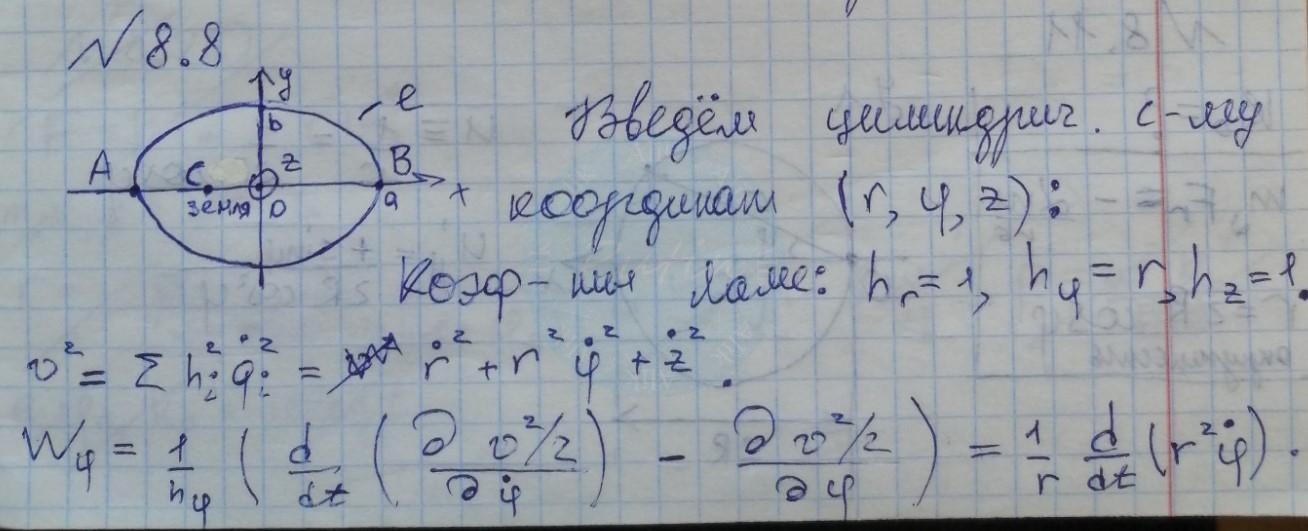 № 8.8
y
b
e
A
C
z
B
земля
0
a
x
Введём цилиндрич. с-му
координат (r, φ, z):
Коэф-ты Ламе: h_r = 1, h_φ = r, h_z = 1.
v² = Σ h_i² q̇_i² = ṙ² + r² φ̇² + ż².
W_φ = 1/h_φ ( d/dt ( ∂ v²/2 / ∂ φ̇ ) − ∂ v²/2 / ∂ φ ) = 1/r d/dt (r² φ̇).